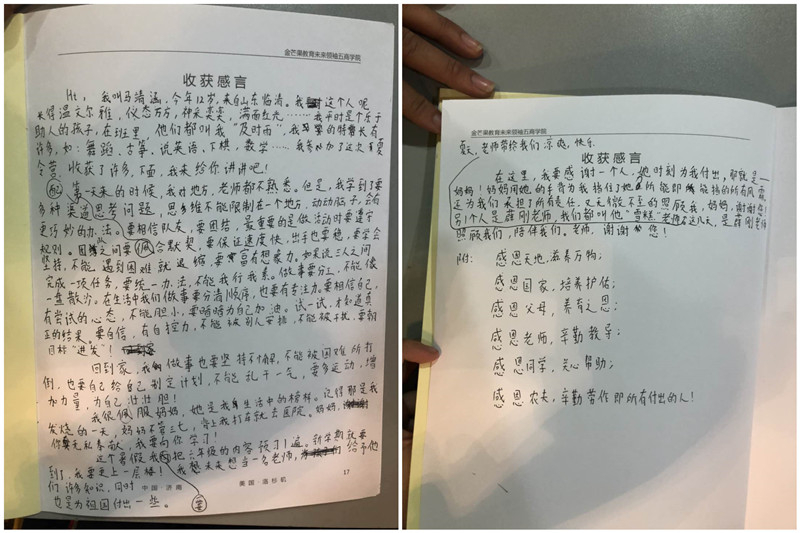 金芒果教育未来领袖五商学院
收获感言
Hi，我叫马靖涵，今年12岁，来自山东临清。我这个人呢
长得温文尔雅，仪态万方，神采奕奕，满面红光……我平时是个乐于
助人的孩子，在班里，他们都叫我“及时雨”，我的特长有
许多，如：舞蹈、古筝、说英语、下棋、数学……我参加了这次夏
令营，收获了许多，下面，我来给你讲讲吧！
第一天来的时候，我对地方，老师都不熟悉。但是，我学到了要
多种渠道思考问题，思维不能限制在一个地方，动动脑子，会有
更巧妙的办法。要相信队友，要团结，最重要的是做活动时要遵守
规则。团队之间要配合默契，要保证速度快，出手也要稳，要学会
坚持，不能遇到困难就退缩，要富有想象力。如果说三人之间
完成一项任务，要统一办法，不能我行我素。做事要分工，不能像
一盘散沙，在生活中我们做事要分清顺序，也要有专注力。要相信自己，
有尝试的心态，不能胆小，要暗暗为自己加油。试一试，才知道真
正的结果。要自信，有自控力，不能被别人安排，不能被干扰，要朝
目标“进发”！
回到家，我做事也要坚持不懈，不能被困难所打
倒，也要自己给自己制定计划，不能乱干一气，要多运动，增
加力量，为自己壮壮胆！
我很佩服妈妈，她是我生活中的榜样。记得那是我
发烧的一天，妈妈不管三七，背上我打车就去医院。妈妈，
你无私奉献，我要向你学习！
这个暑假我把六年级的内容预习1遍。新学期就要
到了，我要更上一层楼！我想未来想当一名老师，给予他
们许多知识，同时
也是为祖国付出一些。
中国·济南
美国·洛杉矶
17
金芒果教育未来领袖五商学院
夏天，老师带给我们凉爽，快乐
收获感言
在这里，我要感谢一个人，她时刻为我付出，那就是
妈妈！妈妈用她的手臂为我挡住了她所能即能挡的所有风雪
还为我们承担了所有责任，又无微不至的照顾我，妈妈，谢谢您！
另1个人是薛刚老师，我们都叫他“雪糕”老师在这几天，是薛刚老师
照顾我们，陪伴我们。老师，谢谢您！
附：感恩天地，滋养万物；
感恩国家，培养护佑；
感恩父母，养育之恩；
感恩老师，辛勤教导；
感恩同学，关心帮助；
感恩农夫，辛勤劳作即所有付出的人！